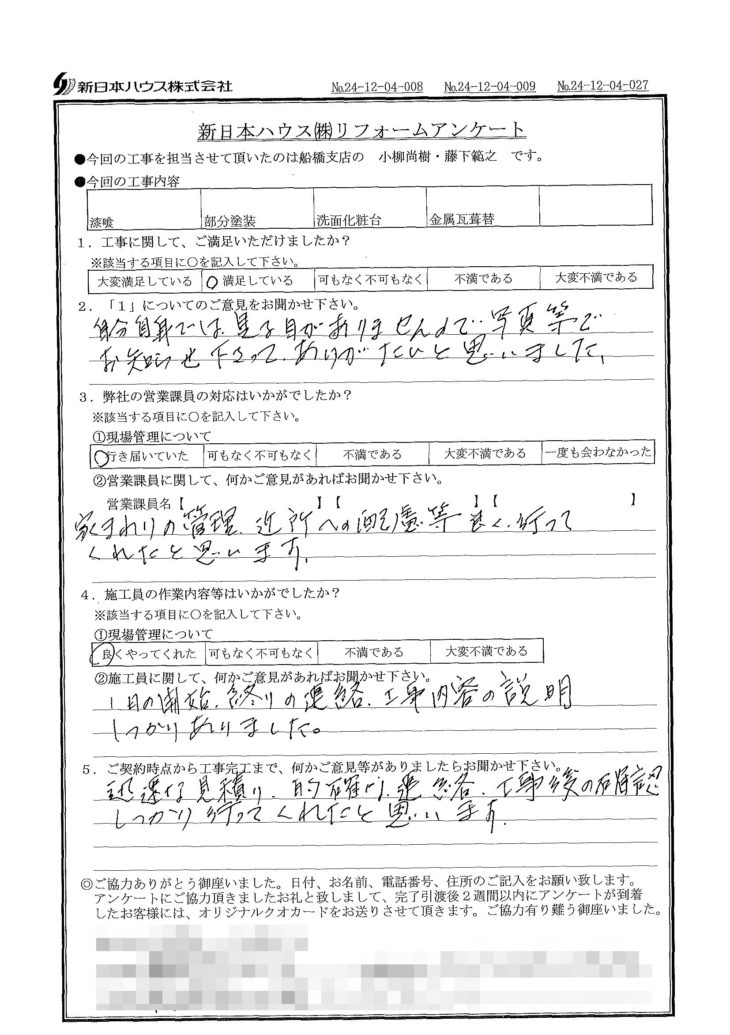 新日本ハウス株式会社 No.24-12-04-008 No.24-12-04-009 No.24-12-04-027
新日本ハウス㈱リフォームアンケート
●今回の工事を担当させて頂いたのは船橋支店の 小柳尚樹・藤下範之 です。
●今回の工事内容
漆喰 部分塗装 洗面化粧台 金属瓦葺替
1．工事に関して、ご満足いただけましたか？
※該当する項目に○を記入して下さい。
大変満足している ○満足している 可もなく不可もなく 不満である 大変不満である
2．「1」についてのご意見をお聞かせ下さい。
自分自身では見る目がありませんので、写真等で
お知らせ下さって、ありがたいと思いました。
3．弊社の営業課員の対応はいかがでしたか？
※該当する項目に○を記入して下さい。
①現場管理について
○行き届いていた 可もなく不可もなく 不満である 大変不満である 一度も会わなかった
②営業課員に関して、何かご意見があればお聞かせ下さい。
営業課員名【 】【 】【 】
家まわりの管理、近所への配慮等良く行って
くれたと思います。
4．施工員の作業内容等はいかがでしたか？
※該当する項目に○を記入して下さい。
①現場管理について
○良くやってくれた 可もなく不可もなく 不満である 大変不満である
②施工員に関して、何かご意見があればお聞かせ下さい。
1日の開始、終りの連絡、工事内容の説明
しっかりありました。
5．ご契約時点から工事完工まで、何かご意見等がありましたらお聞かせ下さい。
迅速な見積り、的確な連絡、工事後の確認
しっかり行ってくれたと思います。
◎ご協力ありがとう御座いました。日付、お名前、電話番号、住所のご記入をお願い致します。
アンケートにご協力頂きましたお礼と致しまして、完了引渡後２週間以内にアンケートが到着
したお客様には、オリジナルクオカードをお送りさせて頂きます。ご協力有り難う御座いました。